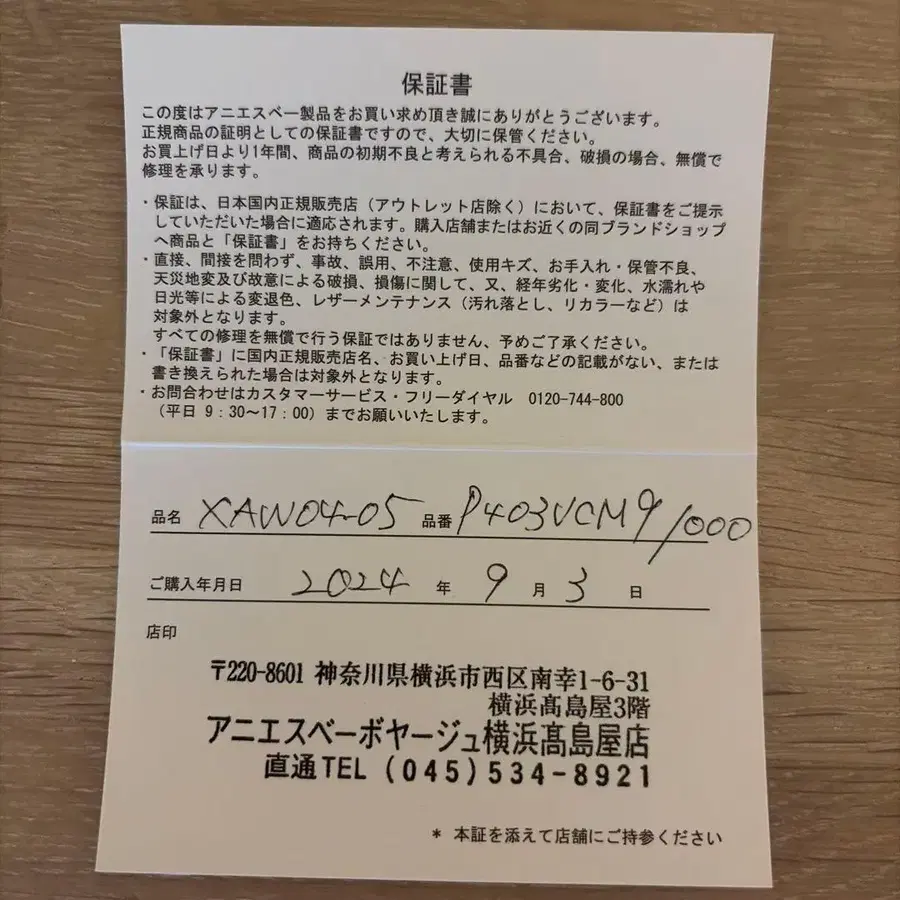 保証書
この度はアニエスベー製品をお買い求め頂き誠にありがとうございます。
正規商品の証明としての保証書ですので、大切に保管ください。
お買上げ日より1年間、商品の初期不良と考えられる不具合、破損の場合、無償で
修理を承ります。
・保証は、日本国内正規販売店（アウトレット店除く）において、保証書をご提示
していただいた場合に適応されます。購入店舗またはお近くの同ブランドショップ
へ商品と「保証書」をお持ちください。
・直接、間接を問わず、事故、誤用、不注意、使用キズ、お手入れ・保管不良、
天災地変及び故意による破損、損傷に関して、又、経年劣化・変化、水濡れや
日光等による変退色、レザーメンテナンス（汚れ落とし、リカラーなど）は
対象外となります。
すべての修理を無償で行う保証ではありません、予めご了承ください。
・「保証書」に国内正規販売店名、お買い上げ日、品番などの記載がない、または
書き換えられた場合は対象外となります。
・お問合わせはカスタマーサービス・フリーダイヤル 0120-744-800
（平日 9：30〜17：00）までお願いいたします。
品名 XAW04-05 品番 P403VCM9/000
ご購入年月日 2024 年 9 月 3 日
店印
〒220-8601 神奈川県横浜市西区南幸1-6-31
横浜髙島屋3階
アニエスベーボヤージュ横浜髙島屋店
直通TEL (045)534-8921
* 本証を添えて店舗にご持参ください